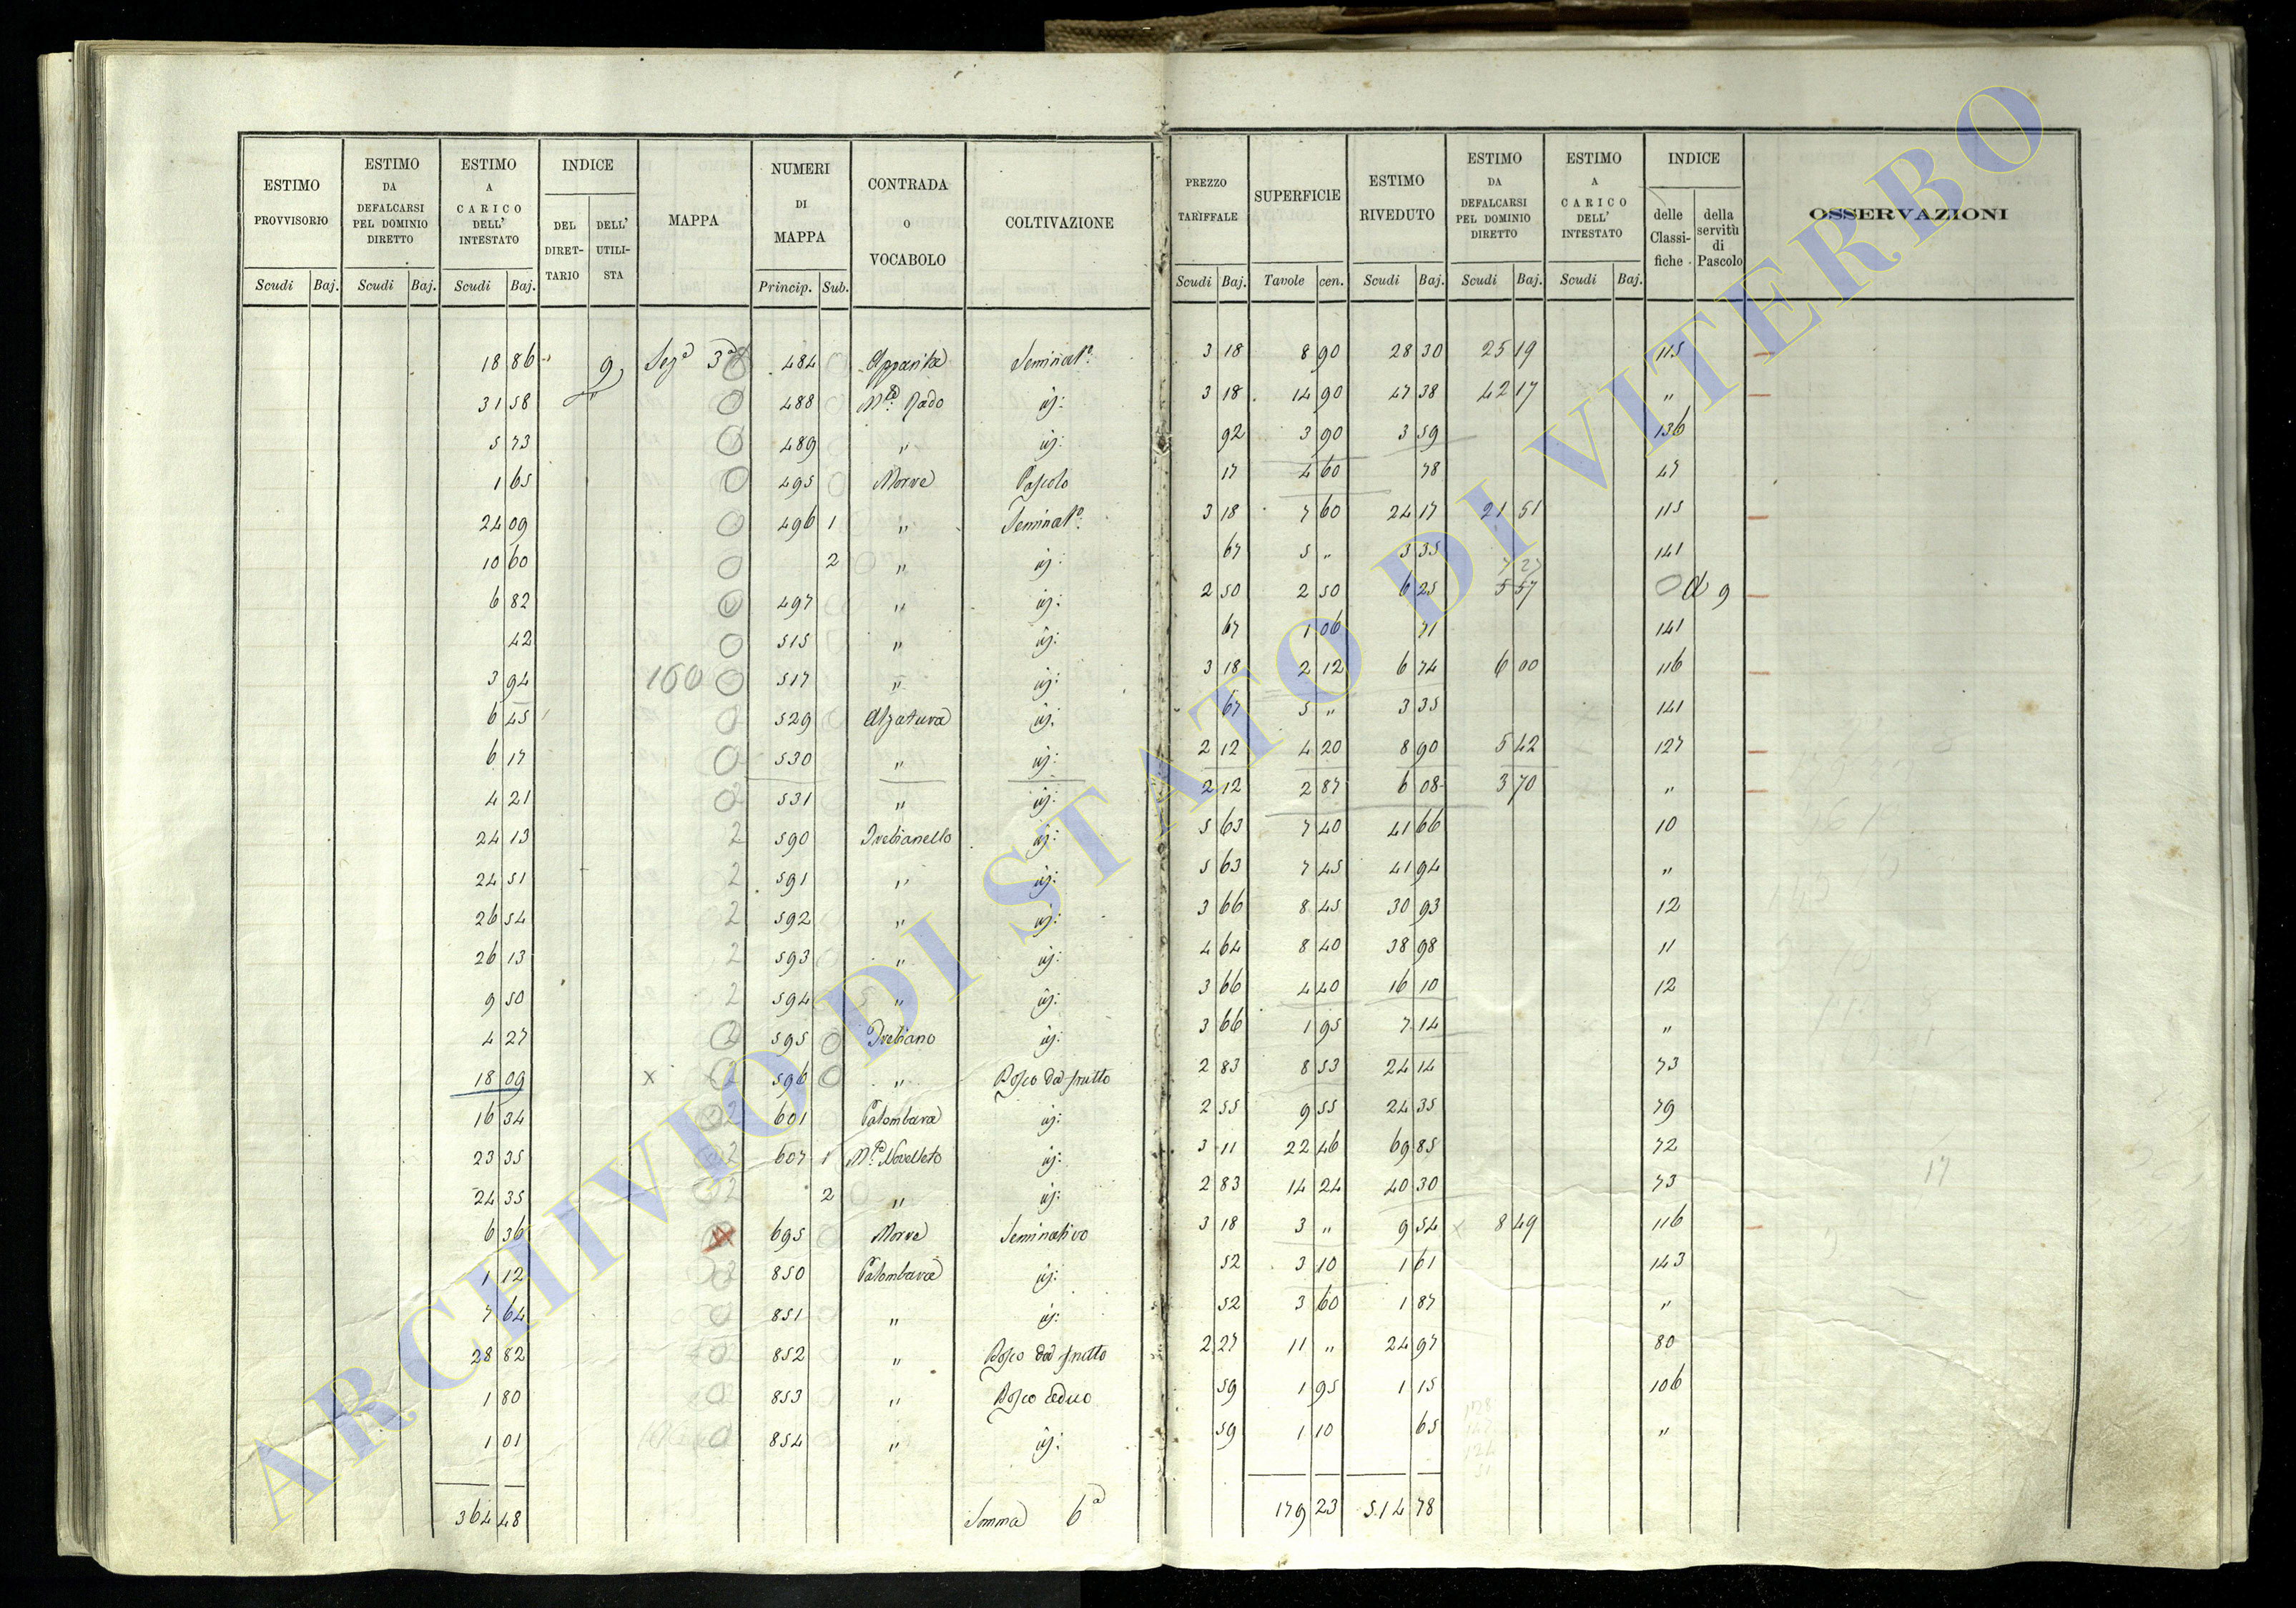 ESTIMO PROVVISORIO | ESTIMO DA DEFALCARSI PEL DOMINIO DIRETTO | ESTIMO A CARICO DELL' INTESTATO | INDICE | MAPPA | NUMERI DI MAPPA | CONTRADA O VOCABOLO | COLTIVAZIONE | PREZZO TARIFFALE | SUPERFICIE | ESTIMO RIVEDUTO | ESTIMO DA DEFALCARSI PEL DOMINIO DIRETTO | ESTIMO A CARICO DELL' INTESTATO | INDICE | OSSERVAZIONI
DEL DIRET-TARIO | DELL' UTILI-STA | delle Classi-fiche | della servitù di Pascolo
Scudi | Baj. | Scudi | Baj. | Scudi | Baj. | Princip. | Sub. | Scudi | Baj. | Tavole | cen. | Scudi | Baj. | Scudi | Baj. | Scudi | Baj.
18 86 | 9 | Segª 3ª | 484 | Apparita | Seminatº | 3 18 | 8 90 | 28 30 | 25 19 | 115
31 58 | " | 488 | Rado | id: | 3 18 | 14 90 | 47 38 | 42 17 | "
5 73 | 489 | " | id: | 92 | 3 90 | 3 59 | 136
1 65 | 495 | Morre | Pascolo | 17 | 4 60 | 78 | 47
24 09 | 496 | 1 | " | Seminatº | 3 18 | 7 60 | 24 17 | 21 51 | 115
10 60 | 2 | " | id: | 67 | 5 " | 3 35 | 141
7 27
6 82 | 497 | " | id: | 2 50 | 2 50 | 6 25 | 5 57 | A 9
42 | 515 | " | id: | 67 | 1 06 | 71 | 141
3 94 | 160 | 517 | " | id: | 3 18 | 2 12 | 6 74 | 6 00 | 116
6 45 | 529 | Alzatura | id: | 67 | 5 " | 3 35 | 141
6 17 | 530 | " | id: | 2 12 | 4 20 | 8 90 | 5 42 | 127
4 21 | 531 | " | id: | 2 12 | 2 87 | 6 08 | 3 70 | "
24 13 | 2 | 590 | Trebianello | id: | 5 63 | 7 40 | 41 66 | 10
24 51 | 2 | 591 | " | id: | 5 63 | 7 45 | 41 94 | "
26 54 | 2 | 592 | " | id: | 3 66 | 8 45 | 30 93 | 12
26 13 | 2 | 593 | " | id: | 4 64 | 8 40 | 38 98 | 11
9 50 | 2 | 594 | " | id: | 3 66 | 4 40 | 16 10 | 12
4 27 | 2 | 595 | Trebiano | id: | 3 66 | 1 95 | 7 14 | "
18 09 | x | 2 | 596 | " | Bosco da frutto | 2 83 | 8 53 | 24 14 | 73
16 34 | 2 | 601 | Palombara | id: | 2 55 | 9 55 | 24 35 | 79
23 35 | 2 | 607 | 1 | Novelleto | id: | 3 11 | 22 46 | 69 85 | 72
24 35 | 2 | 2 | " | id: | 2 83 | 14 24 | 40 30 | 73
6 36 | 695 | Morre | Seminativo | 3 18 | 3 " | 9 54 | x | 8 49 | 116
1 12 | 850 | Palombara | id: | 52 | 3 10 | 1 61 | 143
7 64 | 851 | " | id: | 52 | 3 60 | 1 87 | "
28 82 | 852 | " | Bosco da frutto | 2 27 | 11 " | 24 97 | 80
1 80 | 853 | " | Bosco ceduo | 59 | 1 95 | 1 15 | 106
1 01 | 854 | " | id: | 59 | 1 10 | 65 | "
364 48 | Somma 6ª | 179 23 | 514 78
17
ARCHIVIO DI STATO DI VITERBO